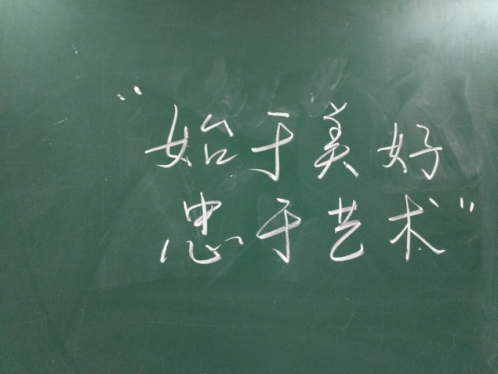 “始于美好
忠于艺术”